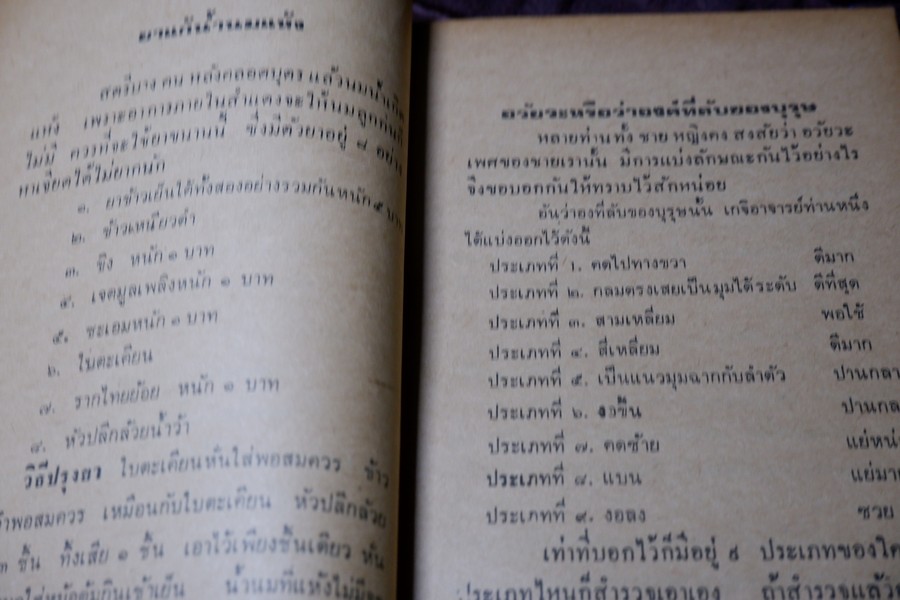 ยาแก้น้ำนมแห้ง
สตรีบาง คน หลังคลอดบุตร แล้วนมน้ำเกิด
แห้ง เพราะอาการภายในสำแดงจะให้นมลูกท่านก็
ไม่มี ควรที่จะใช้ยาขนานนี้ ซึ่งมีตัวยาอยู่ ๘ อย่าง
หาเจียดได้ไม่ยากนัก
๑. ยาข้าวเย็นใต้ทั้งสองอย่างรวมกันหนัก ๕ บาท
๒. ข้าวเหนียวดำ
๓. ขิง หนัก ๑ บาท
๔. เจตมูลเพลิงหนัก ๑ บาท
๕. ชะเอมหนัก ๑ บาท
๖. ใบตะเคียน
๗. รากไทยย้อย หนัก ๑ บาท
๘. หัวปลีกล้วยน้ำว้า
วิธีปรุงยา ใบตะเคียนหั่นใส่พอสมควร ข้าว
ดำพอสมควร เหมือนกับใบตะเคียน หัวปลีกล้วย
๓ ชั้น ทิ้งเสีย ๑ ชั้น เอาไว้เพียงชั้นเดียว หั่น
ใส่หม้อต้มกินเช้าเย็น น้ำนมที่แห้งไม่มี
อวัยวะหรือว่าองค์ที่ลับของบุรุษ
หลายท่านทั้ง ชาย หญิงคง สงสัยว่า อวัยวะ
เพศของชายเรานั้น มีการแบ่งลักษณะกันไว้อย่างไร
จึงขอบอกกันให้ทราบไว้สักหน่อย
อันว่าองที่ลับของบุรุษนั้น เกจิอาจารย์ท่านหนึ่ง
ได้แบ่งออกไว้ดังนี้
ประเภทที่ ๑. คดไปทางขวา ดีมาก
ประเภทที่ ๒. กลมตรงเสยเป็นมุมได้ระดับ ดีที่สุด
ประเภทที่ ๓. สามเหลี่ยม พอใช้
ประเภทที่ ๔. สี่เหลี่ยม ดีมาก
ประเภทที่ ๕. เป็นแนวมุมฉากกับลำตัว ปานกลา
ประเภทที่ ๖. งอขึ้น ปานกล
ประเภทที่ ๗. คดซ้าย แย่หน่
ประเภทที่ ๘. แบน แย่มา
ประเภทที่ ๙. งอลง ซวย
เท่าที่บอกไว้ก็มีอยู่ ๘ ประเภทของใค
ประเภทไหนก็สำรวจเอาเอง ถ้าสำรวจแล้ว